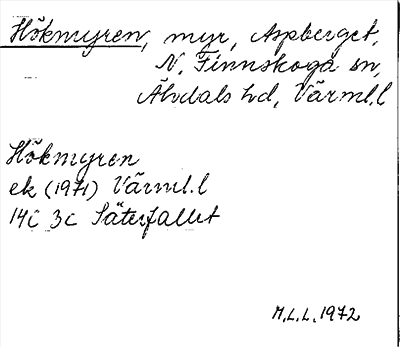 Hökmyren, myr, Aspberget,
N. Finnskoga sn,
Älvdals hd, Värml. l
Hökmyren
ek (1971) Värml. l
14C 3c Säterfallet
M.L.L. 1972